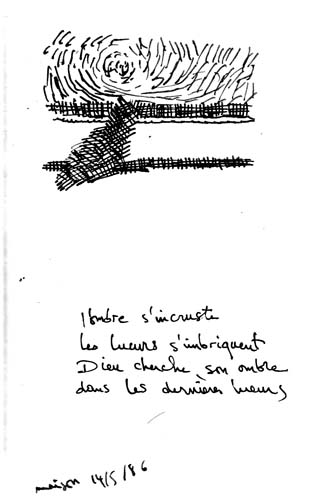 l'ombre s'incruste
les lueurs s'imbriquent
Dieu cherche son ombre
dans les dernières lueurs
maison 14/5/86